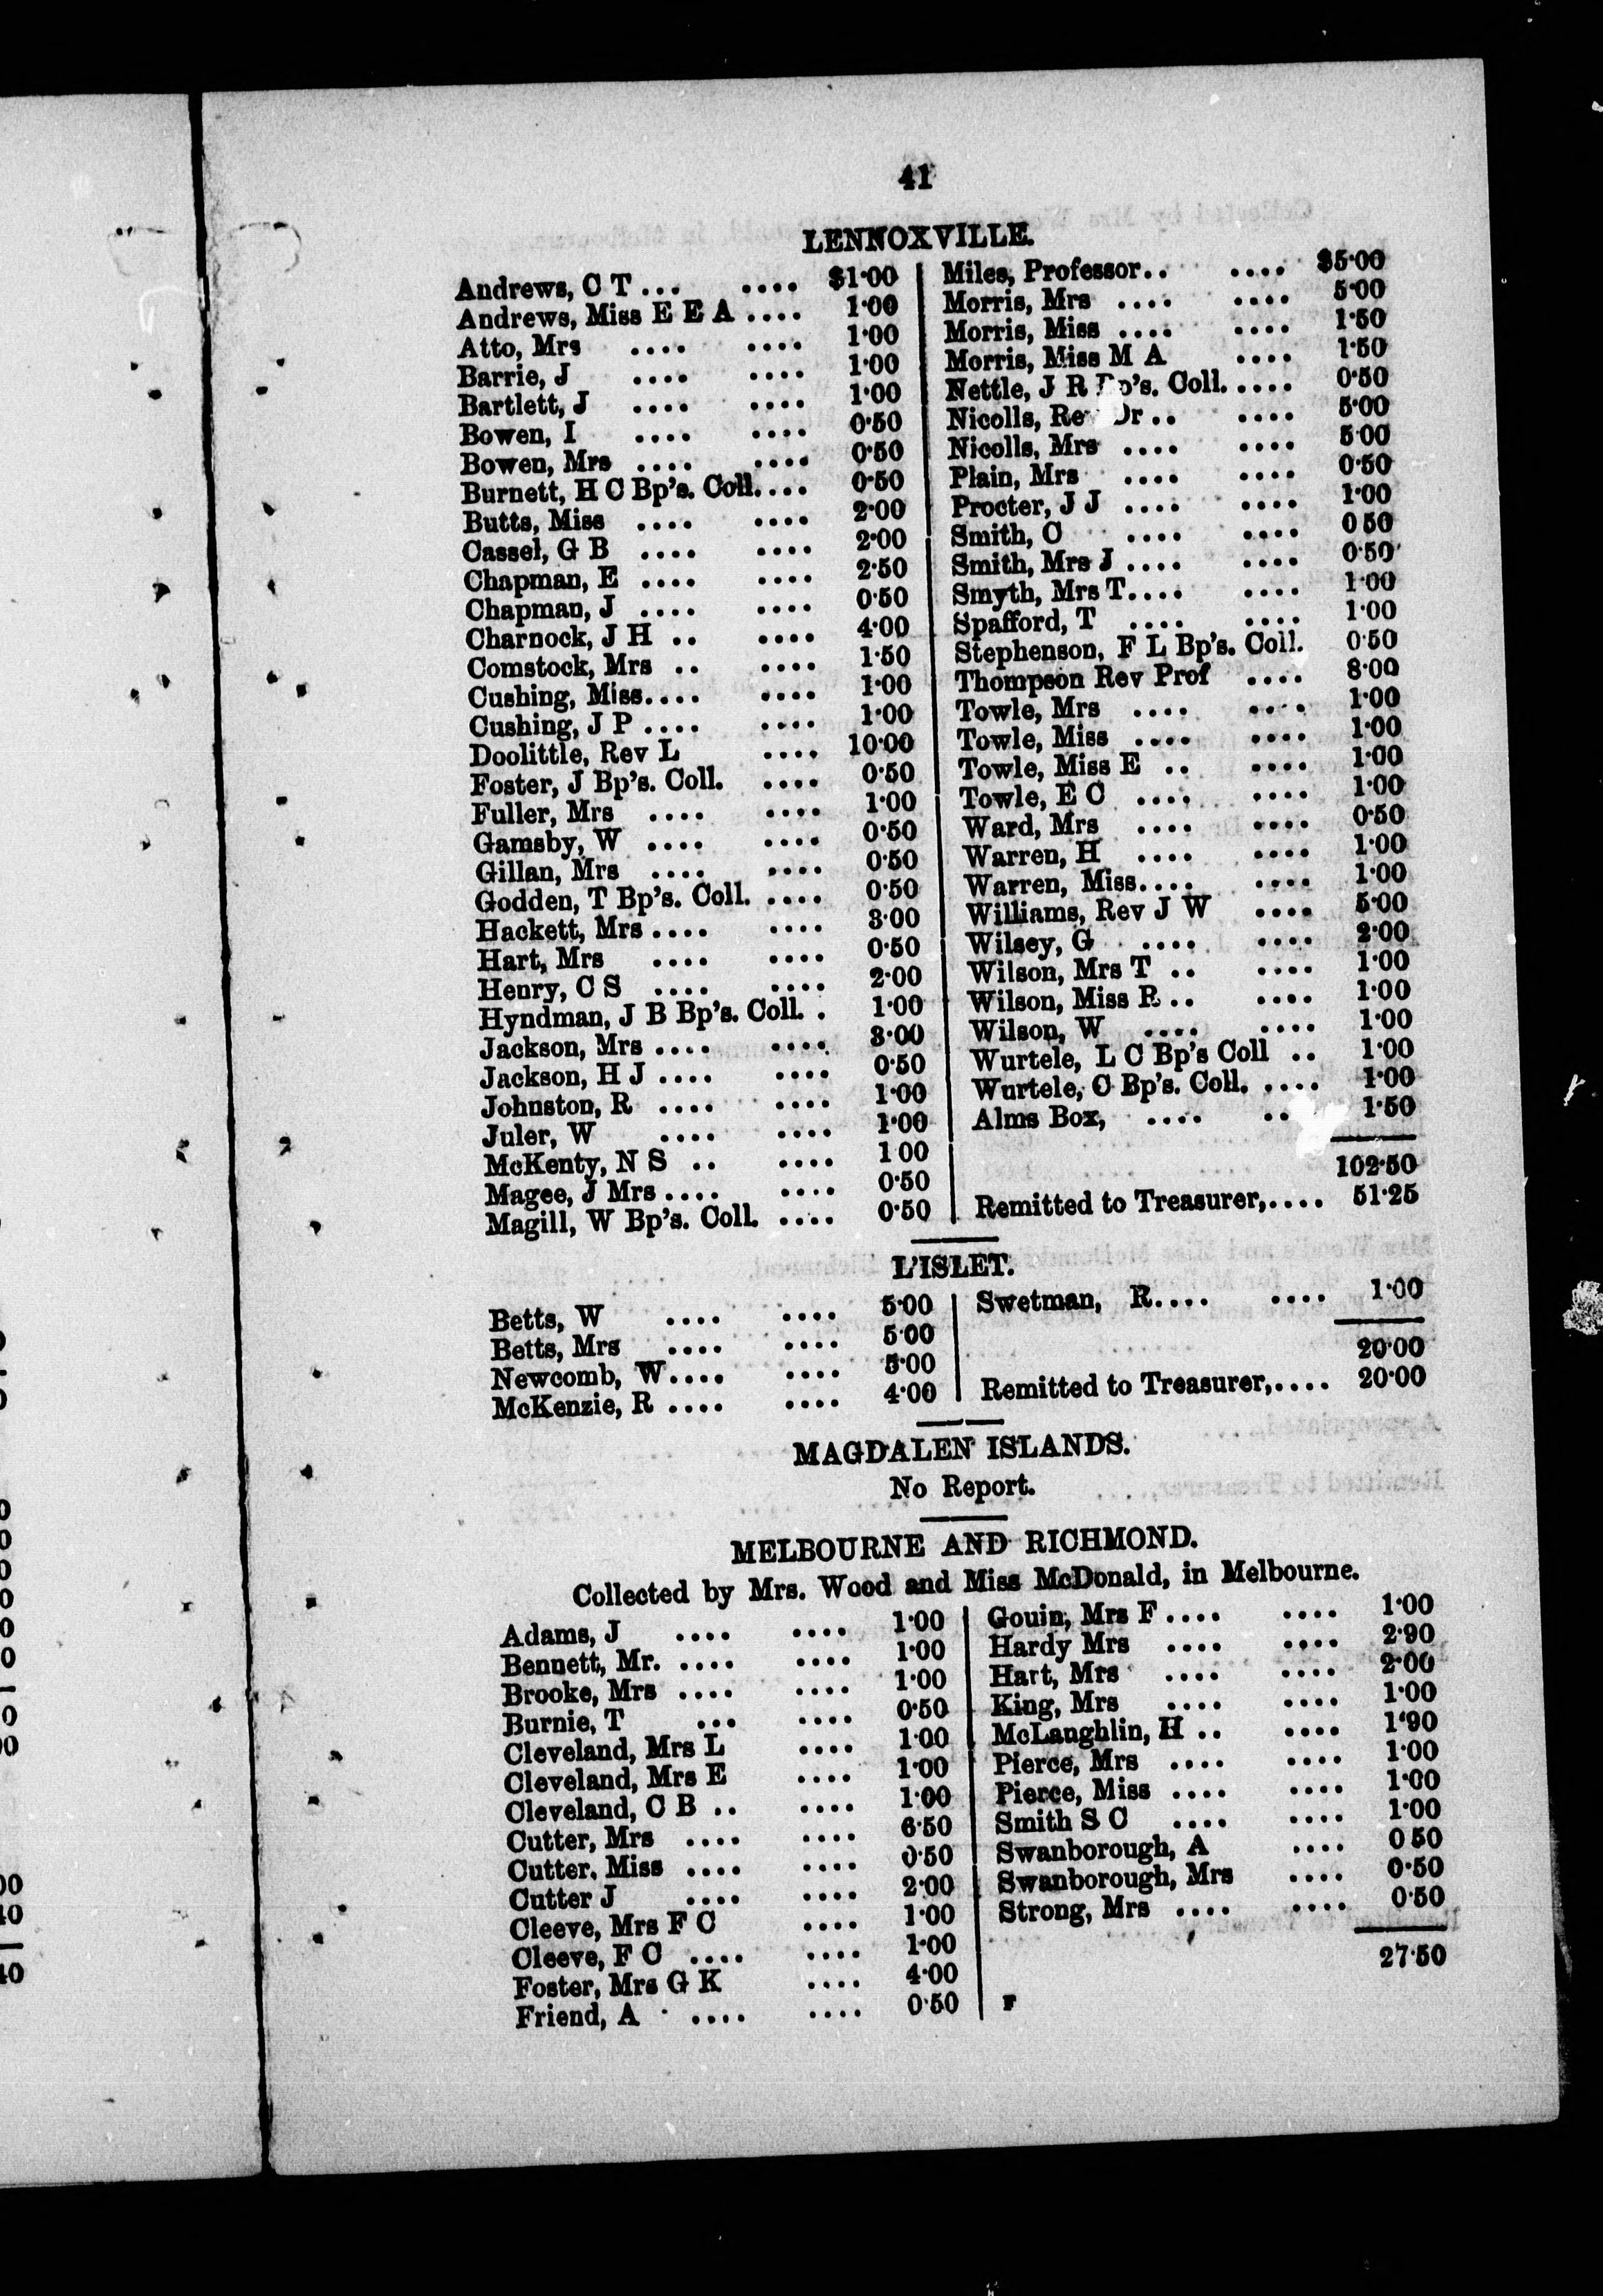 41
LENNOXVILLE.
Andrews, C T ... .... $1·00
Andrews, Miss E E A .... 1·00
Atto, Mrs .... .... 1·00
Barrie, J .... .... 1·00
Bartlett, J .... .... 1·00
Bowen, I .... .... 0·50
Bowen, Mrs .... .... 0·50
Burnett, H C Bp's. Coll. .... 0·50
Butts, Miss .... .... 2·00
Cassel, G B .... .... 2·00
Chapman, E .... .... 2·50
Chapman, J .... .... 0·50
Charnock, J H .. .... 4·00
Comstock, Mrs .. .... 1·50
Cushing, Miss.... .... 1·00
Cushing, J P .... .... 1·00
Doolittle, Rev L .... 10·00
Foster, J Bp's. Coll. .... 0·50
Fuller, Mrs .... .... 1·00
Gamsby, W .... .... 0·50
Gillan, Mrs .... .... 0·50
Godden, T Bp's. Coll. .... 0·50
Hackett, Mrs .... .... 3·00
Hart, Mrs .... .... 0·50
Henry, C S .... .... 2·00
Hyndman, J B Bp's. Coll. . 1·00
Jackson, Mrs .... .... 3·00
Jackson, H J .... .... 0·50
Johnston, R .... .... 1·00
Juler, W .... .... 1·00
McKenty, N S .. .... 1 00
Magee, J Mrs .... .... 0·50
Magill, W Bp's. Coll. .... 0·50
Miles, Professor.. .... $5·00
Morris, Mrs .... .... 5·00
Morris, Miss .... .... 1·50
Morris, Miss M A .... 1·50
Nettle, J R Bp's. Coll. .... 0·50
Nicolls, Rev Dr .. .... 5·00
Nicolls, Mrs .... .... 5·00
Plain, Mrs .... .... 0·50
Procter, J J .... .... 1·00
Smith, C .... .... 0 50
Smith, Mrs J .... .... 0·50
Smyth, Mrs T.... .... 1·00
Spafford, T .... .... 1·00
Stephenson, F L Bp's. Coll. 0·50
Thompson Rev Prof .... 8·00
Towle, Mrs .... .... 1·00
Towle, Miss .... .... 1·00
Towle, Miss E .. .... 1·00
Towle, E C .... .... 1·00
Ward, Mrs .... .... 0·50
Warren, H .... .... 1·00
Warren, Miss.... .... 1·00
Williams, Rev J W .... 5·00
Wilsey, G .... .... 2·00
Wilson, Mrs T .. .... 1·00
Wilson, Miss R .. .... 1·00
Wilson, W .... .... 1·00
Wurtele, L C Bp's Coll .. 1·00
Wurtele, C Bp's. Coll. .... 1·00
Alms Box, .... .. 1·50
102·50
Remitted to Treasurer,.... 51·25
L'ISLET.
Betts, W .... .... 5·00
Betts, Mrs .... .... 5·00
Newcomb, W.... .... 5·00
McKenzie, R .... .... 4·00
Swetman, R.... .... 1·00
20·00
Remitted to Treasurer,.... 20·00
MAGDALEN ISLANDS.
No Report.
MELBOURNE AND RICHMOND.
Collected by Mrs. Wood and Miss McDonald, in Melbourne.
Adams, J .... .... 1·00
Bennett, Mr. .... .... 1·00
Brooke, Mrs .... .... 1·00
Burnie, T ... .... 0·50
Cleveland, Mrs L .... 1·00
Cleveland, Mrs E .... 1·00
Cleveland, C B .. .... 1·00
Cutter, Mrs .... .... 6·50
Cutter, Miss .... .... 0·50
Cutter J .... .... 2·00
Cleeve, Mrs F C .... 1·00
Cleeve, F C .... .... 1·00
Foster, Mrs G K .... 4·00
Friend, A .... .... 0·50
Gouin, Mrs F .... .... 1·00
Hardy Mrs .... .... 2·90
Hart, Mrs .... .... 2·00
King, Mrs .... .... 1·00
McLaughlin, H .. .... 1·90
Pierce, Mrs .... .... 1·00
Pierce, Miss .... .... 1·00
Smith S C .... .... 1·00
Swanborough, A .... 0 50
Swanborough, Mrs .... 0·50
Strong, Mrs .... .... 0·50
27·50
F